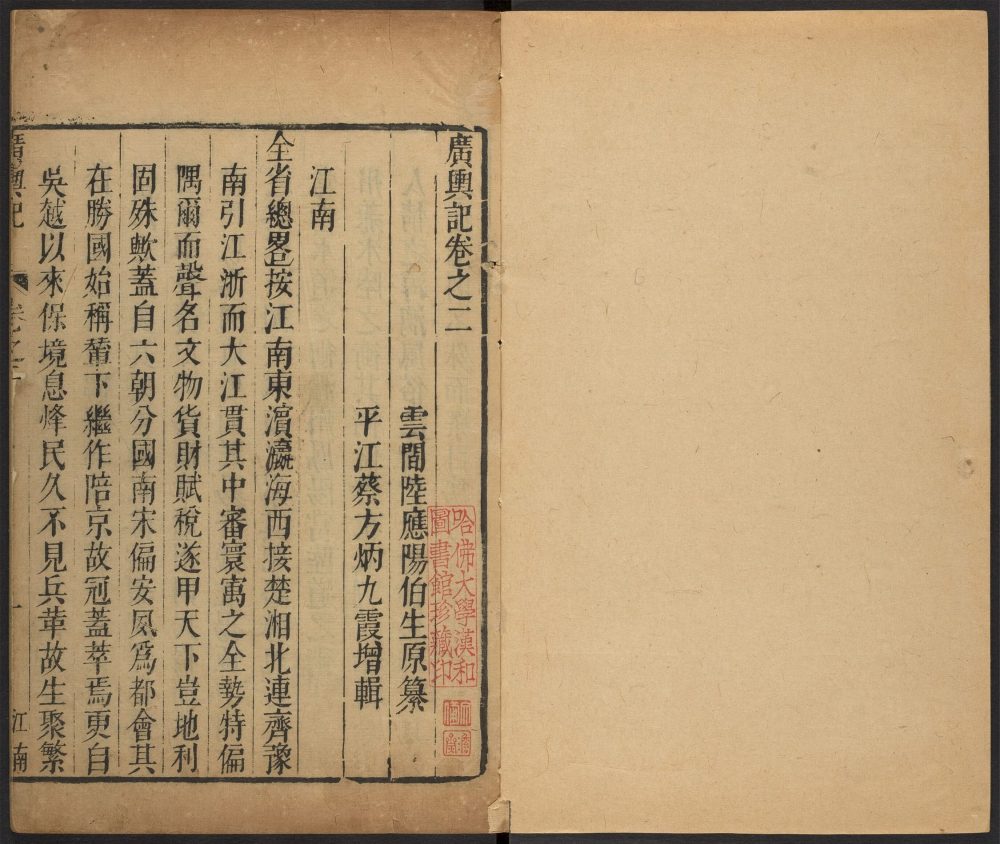 廣輿記卷之二
雲間陸應陽伯生原纂
平江蔡方炳九霞增輯
江南
全省總畧按江南東濵瀛海西接楚湘北連齊豫
南引江浙而大江貫其中審寰寓之全勢特偏
隅爾而聲名文物貨財賦稅遂甲天下豈地利
固殊歟蓋自六朝分國南宋偏安夙爲都會其
在勝國始稱輦下繼作陪京故冠蓋萃焉更自
吳越以來保境息烽民久不見兵革故生聚繁
廣輿記 卷之二 一 江南
哈佛大學漢和
圖書館珍藏印